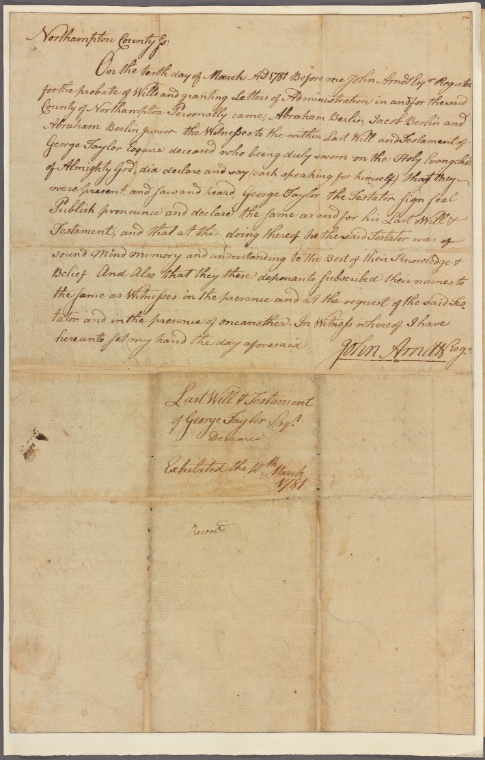 Northampton County Ss:
On the tenth day of March AD 1781 Before me John Arndt Esqr. Register
for the probate of Wills and granting Letters of Administration in and for the said
County of Northampton Personally came, Abraham Berlin, Jacob Berlin and
Abraham Berlin junior the Witnesses to the within Last Will and Testament of
George Taylor Esquire deceased who being duly sworn on the Holy Evangelists
of Almighty God, did declare and say (each speaking for himself) that they
were present, and saw and heard George Taylor the Testator sign seal
Publish pronounce and declare the same as and for his Last Will &
Testament, and that at the doing thereof he the said Testator was of
sound Mind memory and understanding to the Best of their Knowledge &
Belief And Also that they these deponants subscribed their names to
the same as Witnesses in the presence and at the request of the said Tes-
tator and in the presence of one another. In Witness whereof I have
hereunto set my hand the day aforesaid
John Arndt Regr.
Last Will & Testament
of George Taylor Esqr.
Deceased
Exhibited the 10th March
1781